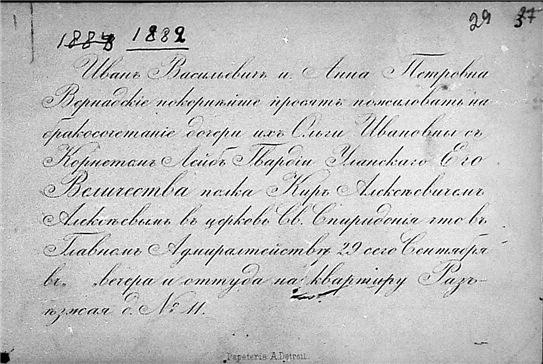 29 37
1888 1882
Иванъ Васильевичъ и Анна Петровна
Вернадскіе покорнѣйше просятъ пожаловать на
бракосочетаніе дочери ихъ Ольги Ивановны съ
Корнетомъ Лейбъ Гвардіи Уланскаго Его
Величества полка Киръ Алексѣевичемъ
Алексѣевымъ въ церковь Св. Спиридонія что въ
Главномъ Адмиралтействѣ 29 сего Сентября
въ вечера и оттуда на квартиру Разъ-
ѣзжая д. № 11.
Papeterie A. Detroit.